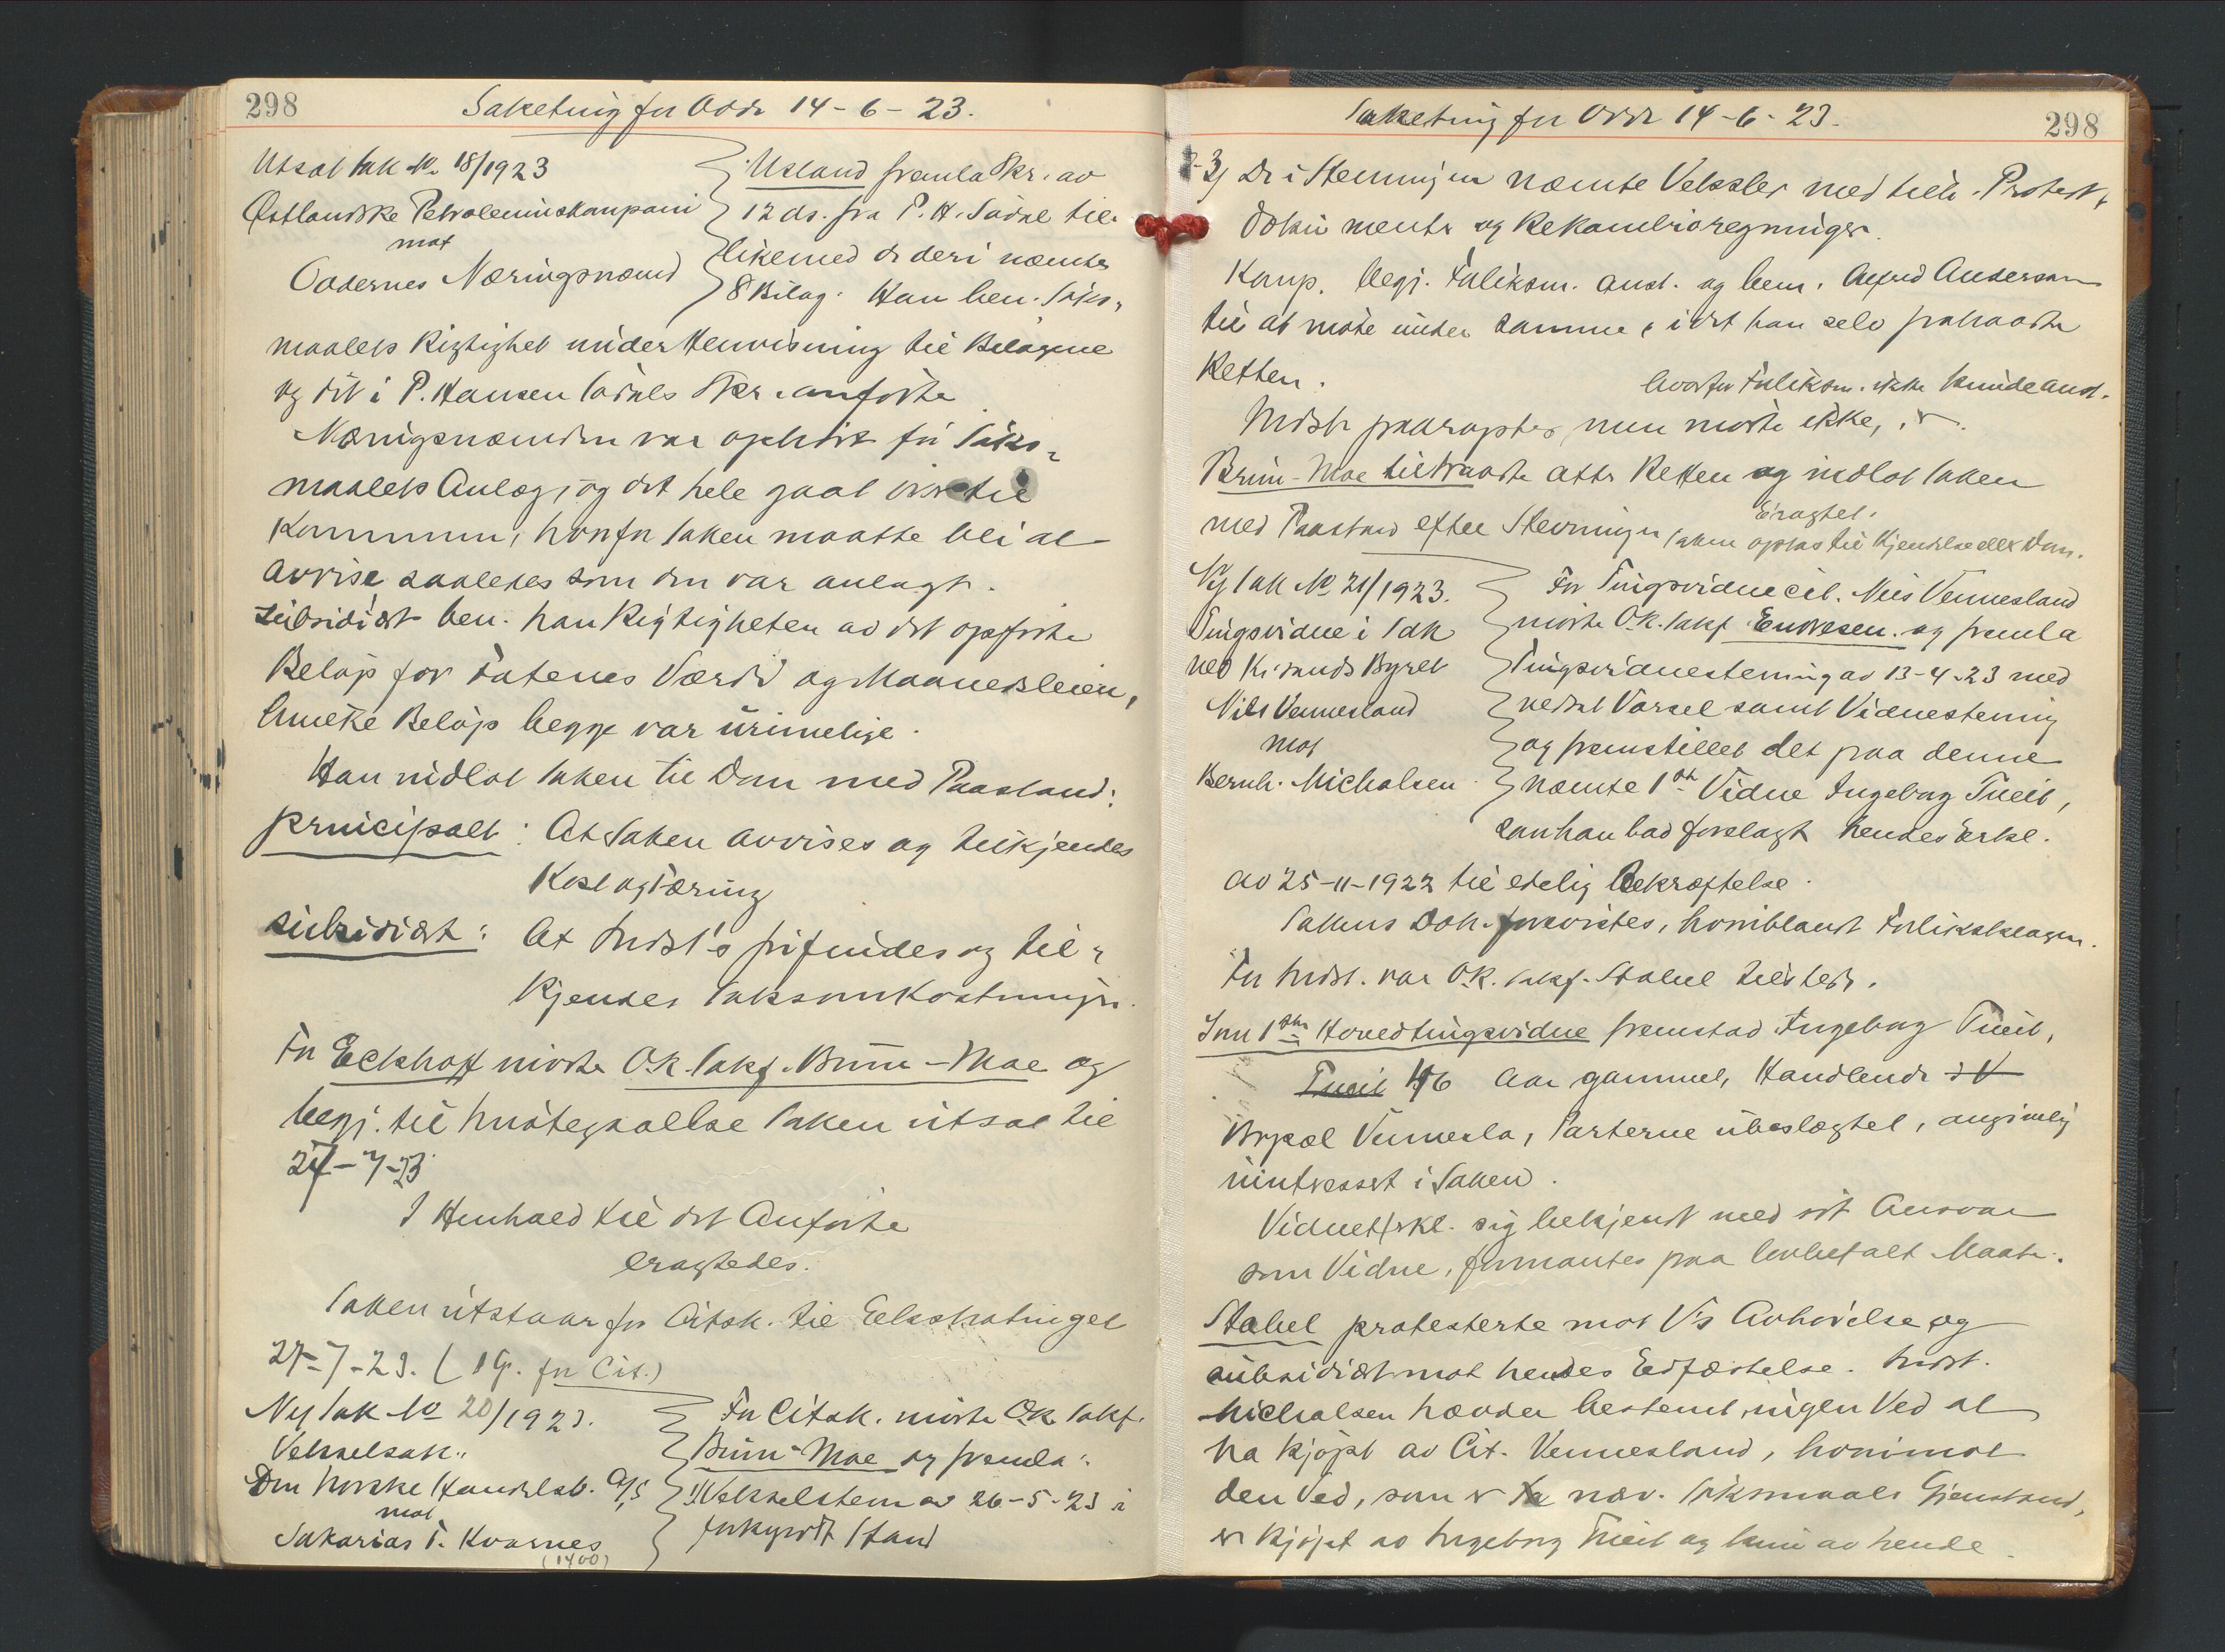 298
Saketing for Oddr 14-6-23.
Utsat Sak No 18/1923
Østlandske Petroleumskompani
mot
Oddernes Næringsnævnd
Usland fremla Skr. av
12 ds. fra P. H. Sødal til-
likemed de deri nævnte
8 Bilag. Han ben. Søks-
maalets Rigtighet under Henvisning til Bilagene
og det i P. Hansen Sødals Skr. anførte.
Næringsnævnden var ophævet før Søks-
maalets Anlæg, og det hele gaat over til
Kommunen, hvorfor Saken maatte bli at
avvise saaledes som den var anlagt.
Subsidiært ben. han Rigtigheten av det opførte
Beløp for Fatenes Værdi og Maanedsleien,
hvilke Beløp begge var urimelige.
Han indlot Saken til Dom med Paastand:
principalt: At Saken avvises og tilkjendes
Kost og Tæring
subsidiært: At Indst's frifindes og til-
kjendes Saksomkostninger.
For Eckhoff møtte O.R. Sakf. Bruun-Moe og
begj. til Imøtegaaelse Saken utsat til
27-7-23
I Henhold til det Anførte
eragtedes:
Saken utstaar for Citsk. til Ekstratinget
27-7-23. (1 G. for Cit.)
Ny Sak No 20/1923.
Vekselsak:
Den norske Handelsb. A/S
mot
Sakarias T. Kvarnes
(1400)
For Citsk. møtte O.R. Sakf.
Bruun-Moe og fremla:
1) Vekselstevn. av 26-5-23 i
forkyndt Stand
Saketing for Oddr 14-6-23.
298
2-3) De i Stevningen nævnte Veksler med tilh. Protest-
dokumenter og Rekambioregninger.
Komp. begj. Forliksm. anst. og bem. Alfred Anderson
til at møte under samme, idet han selv frahaadte
Retten.
hvorfor Forliksm. ikke kunde anst.
Indst. paaroptes, men møtte ikke,
Bruun-Moe tiltraadte atter Retten og indlot Saken
med Paastand efter Stevningen
Eragtet:
Saken optas til Kjendelse eller Dom.
Ny Sak No 21/1923.
Tingsvidne i Sak
ved Kr.sands Byret
Nils Vennesland
mot
Bernh. Michalsen
For Tingsvidnecit. Nils Vennesland
møtte O.R. Sakf. Endresen og fremla
Tingsvidnestevning av 13-4-23 med
vedsat Varsel samt Vidnestevning
og fremstillet det paa denne
nævnte 1ste Vidne Ingeborg Tveit,
som han bad forelagt hendes Erkl.
av 25-11-1922 til edelig Bekræftelse.
Sakens Dok. forevistes, hvoriblandt Forliksklagen.
For Indst. var O.R. Sakf. Stabel tilstede.
Som 1ste Hovedtingsvidne fremstod Ingeborg Tveit,
Tveit 46 Aar gammel, Handlende i V
Bopæl Vennesla, Parterne ubeslægtet, angivelig
uinteressert i Saken.
Vidnet erkl. sig bekjendt med sit Ansvar
som Vidne, formantes paa lovbefalt Maate.
Stabel protesterte mot V's Avhørelse og
subsidiært mot hendes Edfæstelse. Indst.
Michalsen hævder bestemt, ingen Ved at
ha kjøpt av Cit. Vennesland, hvorimot
den Ved, som er nærv. Søksmaals Gjenstand,
er kjøpt av Ingeborg Tveit og kun av hende.